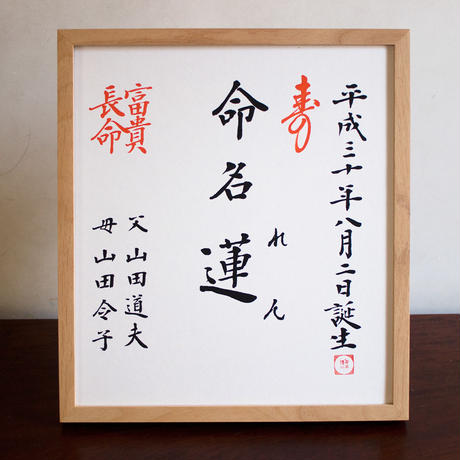 平成三十年八月二日誕生
寿
命名蓮
れん
富貴
長命
父 山田道夫
母 山田令子